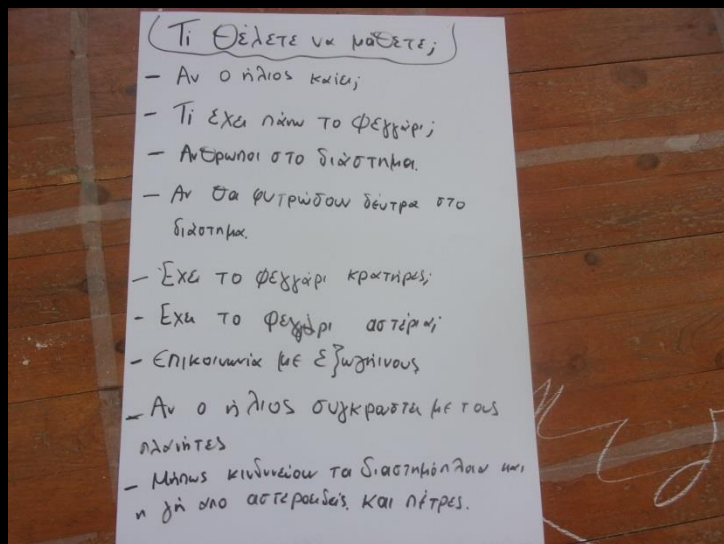 Τι θέλετε να μάθετε;
- Αν ο ήλιος καίει;
- Τι έχει πάνω το φεγγάρι;
- Άνθρωποι στο διάστημα.
- Αν θα φυτρώσουν δέντρα στο
διάστημα.
- Έχει το φεγγάρι κρατήρες;
- Έχει το φεγγάρι αστέρια;
- Επικοινωνία με εξωγήινους
- Αν ο ήλιος συγκραστεί με τους
πλανήτες
- Μήπως κινδυνεύουν τα διαστημόπλοια και
η γή από αστεροειδείς και πέτρες.